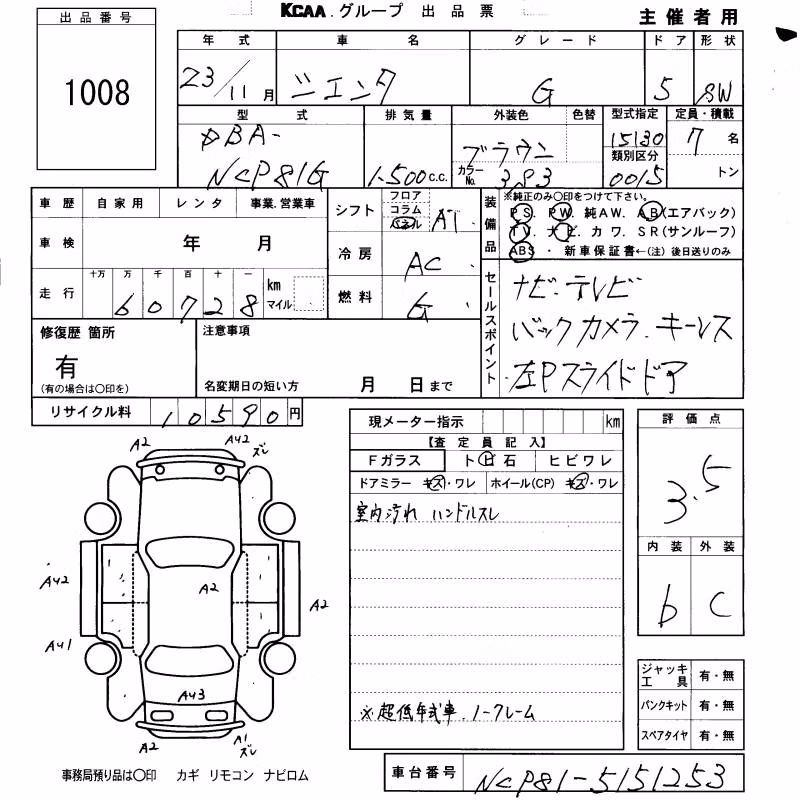 KCAA.グループ 出品票
主催者用
出品番号
1008
年式 車名 グレード ドア 形状
23/11月 シエンタ G 5 SW
型式 排気量 外装色 色替 型式指定 定員・積載
DBA- ブラウン 15130 7名
類別区分
NCP81G 1.500c.c. カラーNo. 3P3 0015 トン
車歴 自家用 レンタ 事業.営業車
車検 年 月
走行 十万 万 千 百 十 一
60728 km マイル
シフト フロア コラム パネル AT
冷房 AC
燃料 G
装備品
※純正のみ〇印をつけて下さい。
PS. PW. 純AW. AB(エアバック)
TV. ナビ カワ. SR(サンルーフ)
ABS・新車保証書←(注)後日送りのみ
セールスポイント
ナビ.テレビ
バックカメラ.キーレス
左Pスライドドア
修復歴 箇所
有
(有の場合は〇印を)
注意事項
名変期日の短い方 月 日まで
リサイクル料 10590円
現メーター指示 km
【査定員記入】
Fガラス ト ビ 石 ヒビワレ
ドアミラー キズ・ワレ ホイール(CP) キズ・ワレ
室内汚れ ハンドルスレ
※超低年式車.ノークレーム
評価点
3.5
内装 外装
b C
ジャッキ工具 有・無
パンクキット 有・無
スペアタイヤ 有・無
A2 AU2 ズレ
AU2
A2
A2
AU1
AU3
A2 A1 ズレ
事務局預り品は〇印 カギ リモコン ナビロム
車台番号 NCP81-5151253